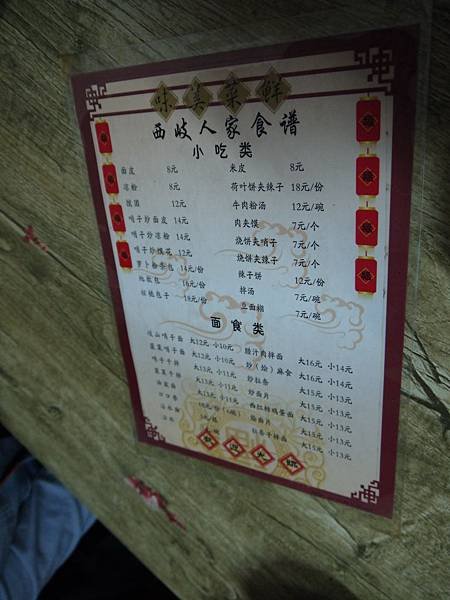 味美菜鲜
西岐人家食谱
小吃类
面皮 8元
米皮 8元
凉粉 8元
荷叶饼夹辣子 18元/份
搅团 12元
牛肉粉汤 12元/碗
哨子炒面皮 14元
肉夹馍 7元/个
哨子炒凉粉 14元
烧饼夹哨子 7元/个
哨子炒搅团 12元
烧饼夹辣子 7元/个
萝卜粉条包 14元/份
辣子饼 12元/份
地软包 16元/份
拌汤 7元/碗
核桃包子 18元/份
豆面糊 7元/碗
面食类
岐山哨子面 大12元 小10元
腊汁肉拌面 大16元 小14元
韭菜哨子面 大12元 小10元
炒(烩)麻食 大16元 小14元
哨子干拌 大13元 小11元
炒拉条 大15元 小13元
韭菜干拌 大13元 小11元
炒面片 大15元 小13元
油泼面 大13元 小11元
西红柿鸡蛋面 大15元 小13元
烩面片 大15元 小13元
拉条子拌面 大15元 小13元